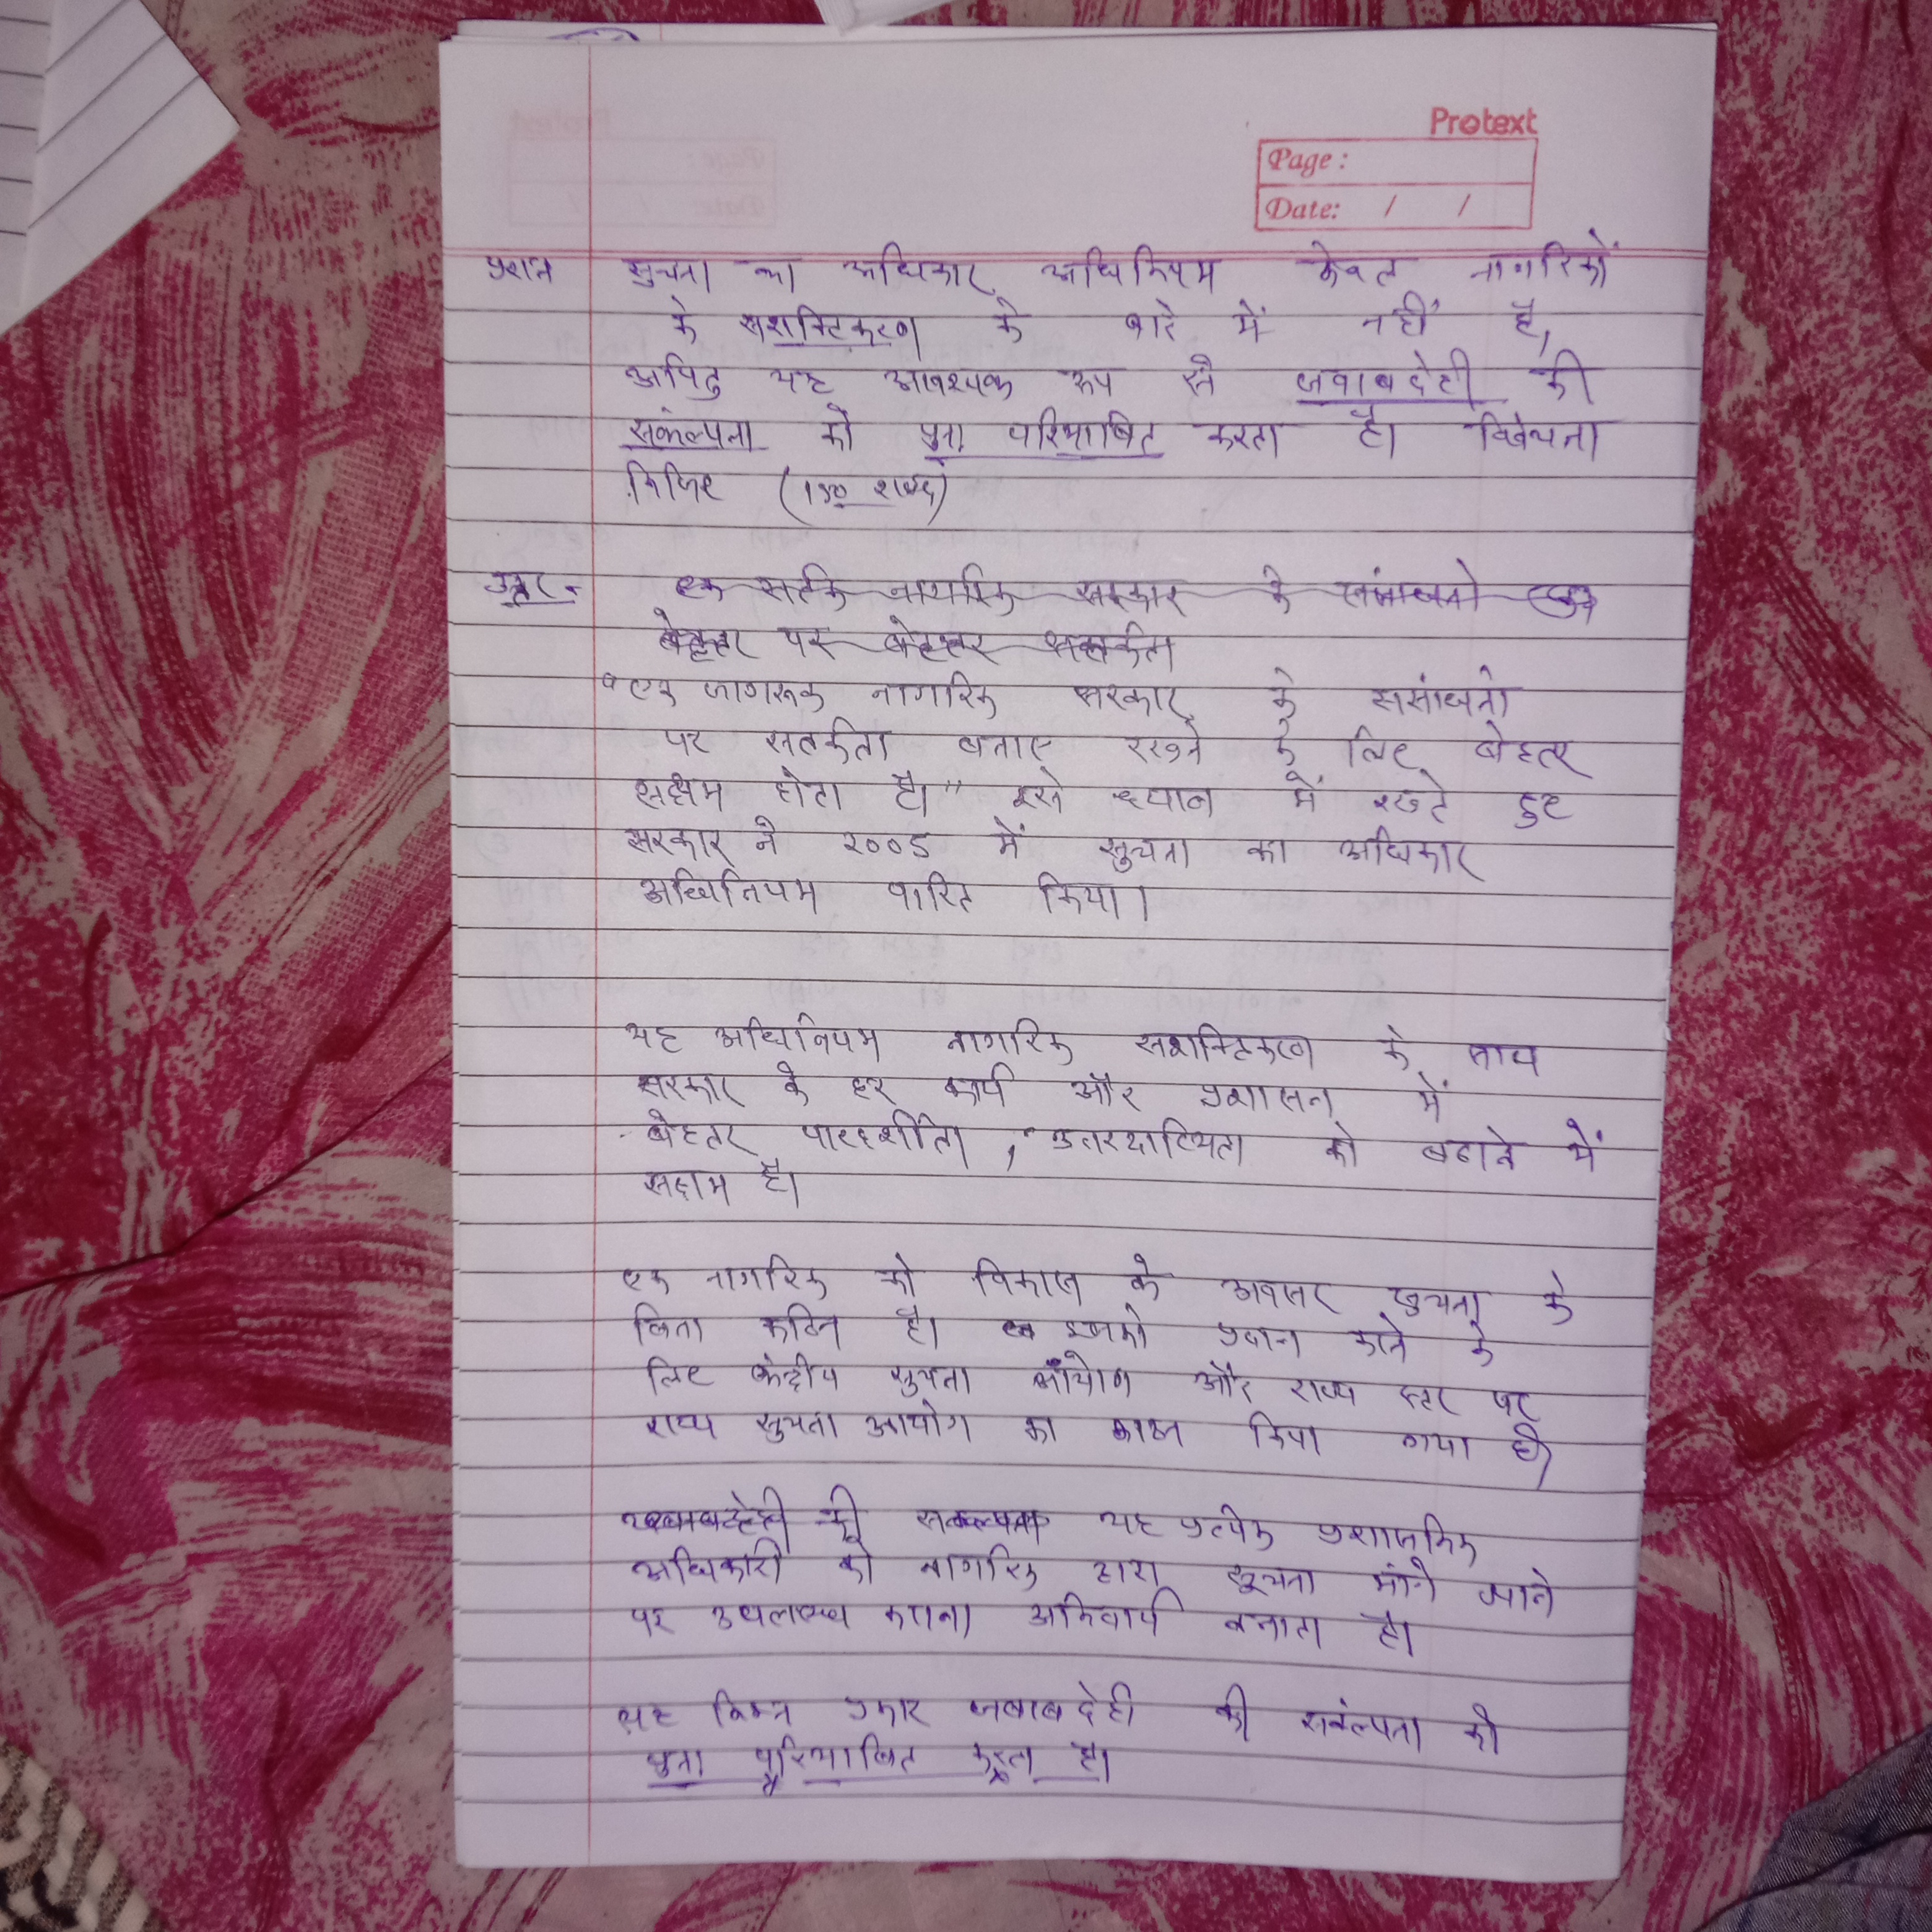 Protext
Page :
Date: / /
प्रशन सुचना का अधिकार अधिनियम केवल नागरिकों
के सशक्टिकरण के बारे में नहीं है,
अपितु यह आवश्यक रूप से जवाबदेही की
संकल्पना को पुना परिभाषित करता है। विवेचना
किजिए (150 शब्द)
उत्तर - एक सर्तक नागरिक सरकार के संसाधनो
बेहतर पर बेहतर सतर्कता
"एक जागरूक नागरिक सरकार के संसाधनो
पर सतर्कता बनाए रखने के लिए बेहतर
सक्षम होता है।" इसे ध्यान में रखते हुए
सरकार ने 2005 में सुचना का अधिकार
अधिनियम पारित किया।
यह अधिनियम नागरिक सशक्टिकरण के साथ
सरकार के हर कार्य और प्रशासन में
बेहतर पारदर्शीता, उत्तरदायित्वता को बढाने में
सक्षम है।
एक नागरिक को विकास के अवसर सुचना के
बिना कठिन है। इसको प्रदान करने के
लिए केंद्रीय सुचना आयोग और राज्य स्तर पर
राज्य सुचना आयोग का गठन किया गया है
जवाबदेही की सकल्पना यह प्रत्येक प्रशासनिक
अधिकारी को नागरिक द्वारा सूचना मांगे जाने
पर उपलब्ध कराना अनिवार्य बनाता है।
यह निम्न प्रकार जवाबदेही की सकंल्पना को
पुना परिभाषित करता है।